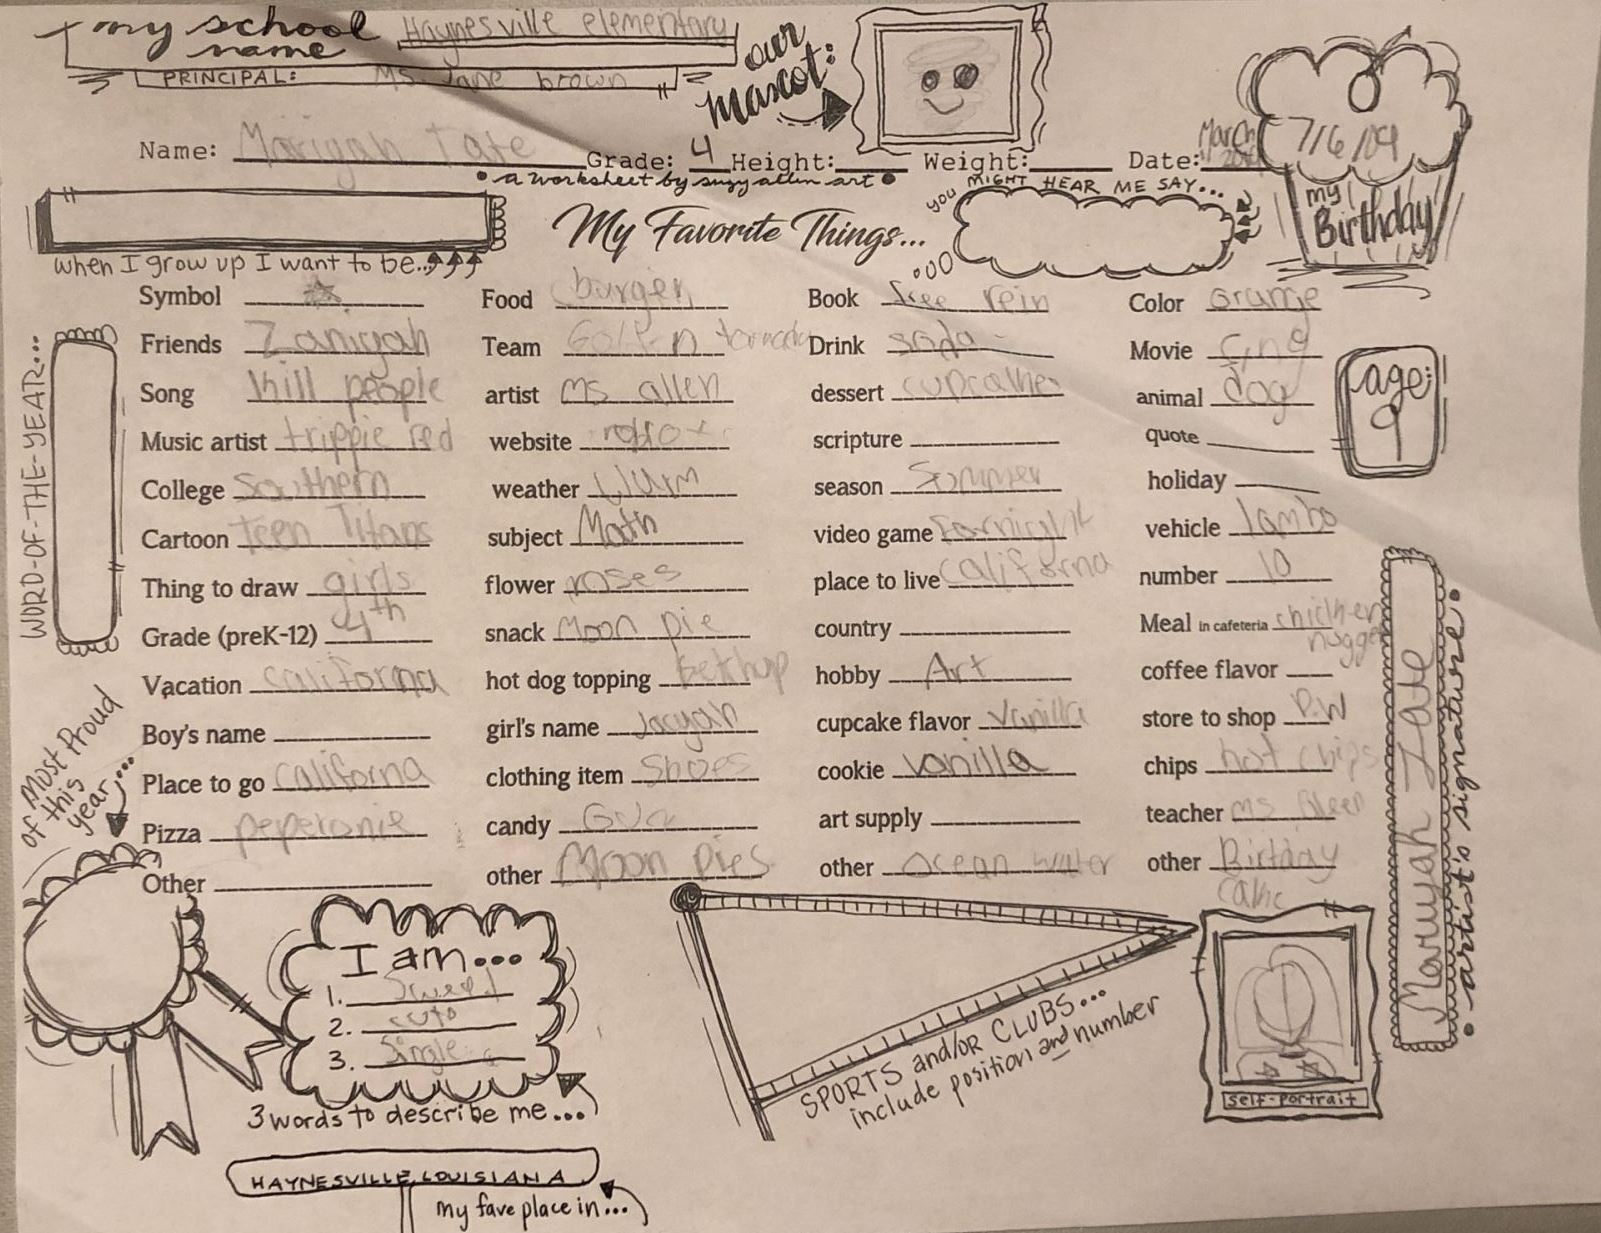 my school name Haynesville elementary
PRINCIPAL: Ms. Jane brown
our mascot:
Name: Mariyah Tate Grade: 4 Height: Weight: Date: March
7/6/09
my Birthday
• a worksheet by suzy allen art •
you MIGHT HEAR ME SAY...
My Favorite Things...
when I grow up I want to be...
Symbol Food burger Book free rein Color orange
Friends Zaniyah Team Golden tornado Drink soda Movie Cing
Song Kill people artist ms allen dessert cupcakes animal dog
age: 9
Music artist trippie red website roblox scripture quote
College Southern weather Wurm season Sommer holiday
Cartoon Teen Titans subject Math video game Fornight vehicle lambo
Thing to draw girls flower roses place to live California number 10
Grade (preK-12) 4th snack Moon pie country Meal in cafeteria chicken nugget
Vacation California hot dog topping ketchup hobby Art coffee flavor
Boy's name girl's name Jaryah cupcake flavor Vanilla store to shop P.W
Place to go California clothing item Shoes cookie vanilla chips hot chips
Pizza peperonie candy art supply teacher ms
Other other Moon pies other ocean water other Birtday cake
WORD-OF-THE-YEAR...
of Most Proud this year...
I am...
1. Sweet
2. cute
3. Single
3 words to describe me...
SPORTS and/or CLUBS...
include position and number
self-portrait
Mariyah Tate
• artist's signature •
HAYNESVILLE, LOUISIANA
my fave place in...